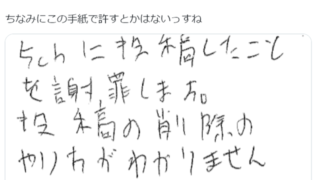 ちなみにこの手紙で許すとかはないっすね
5chに投稿したこと
を謝罪します。
投稿の削除の
やり方がわかりません